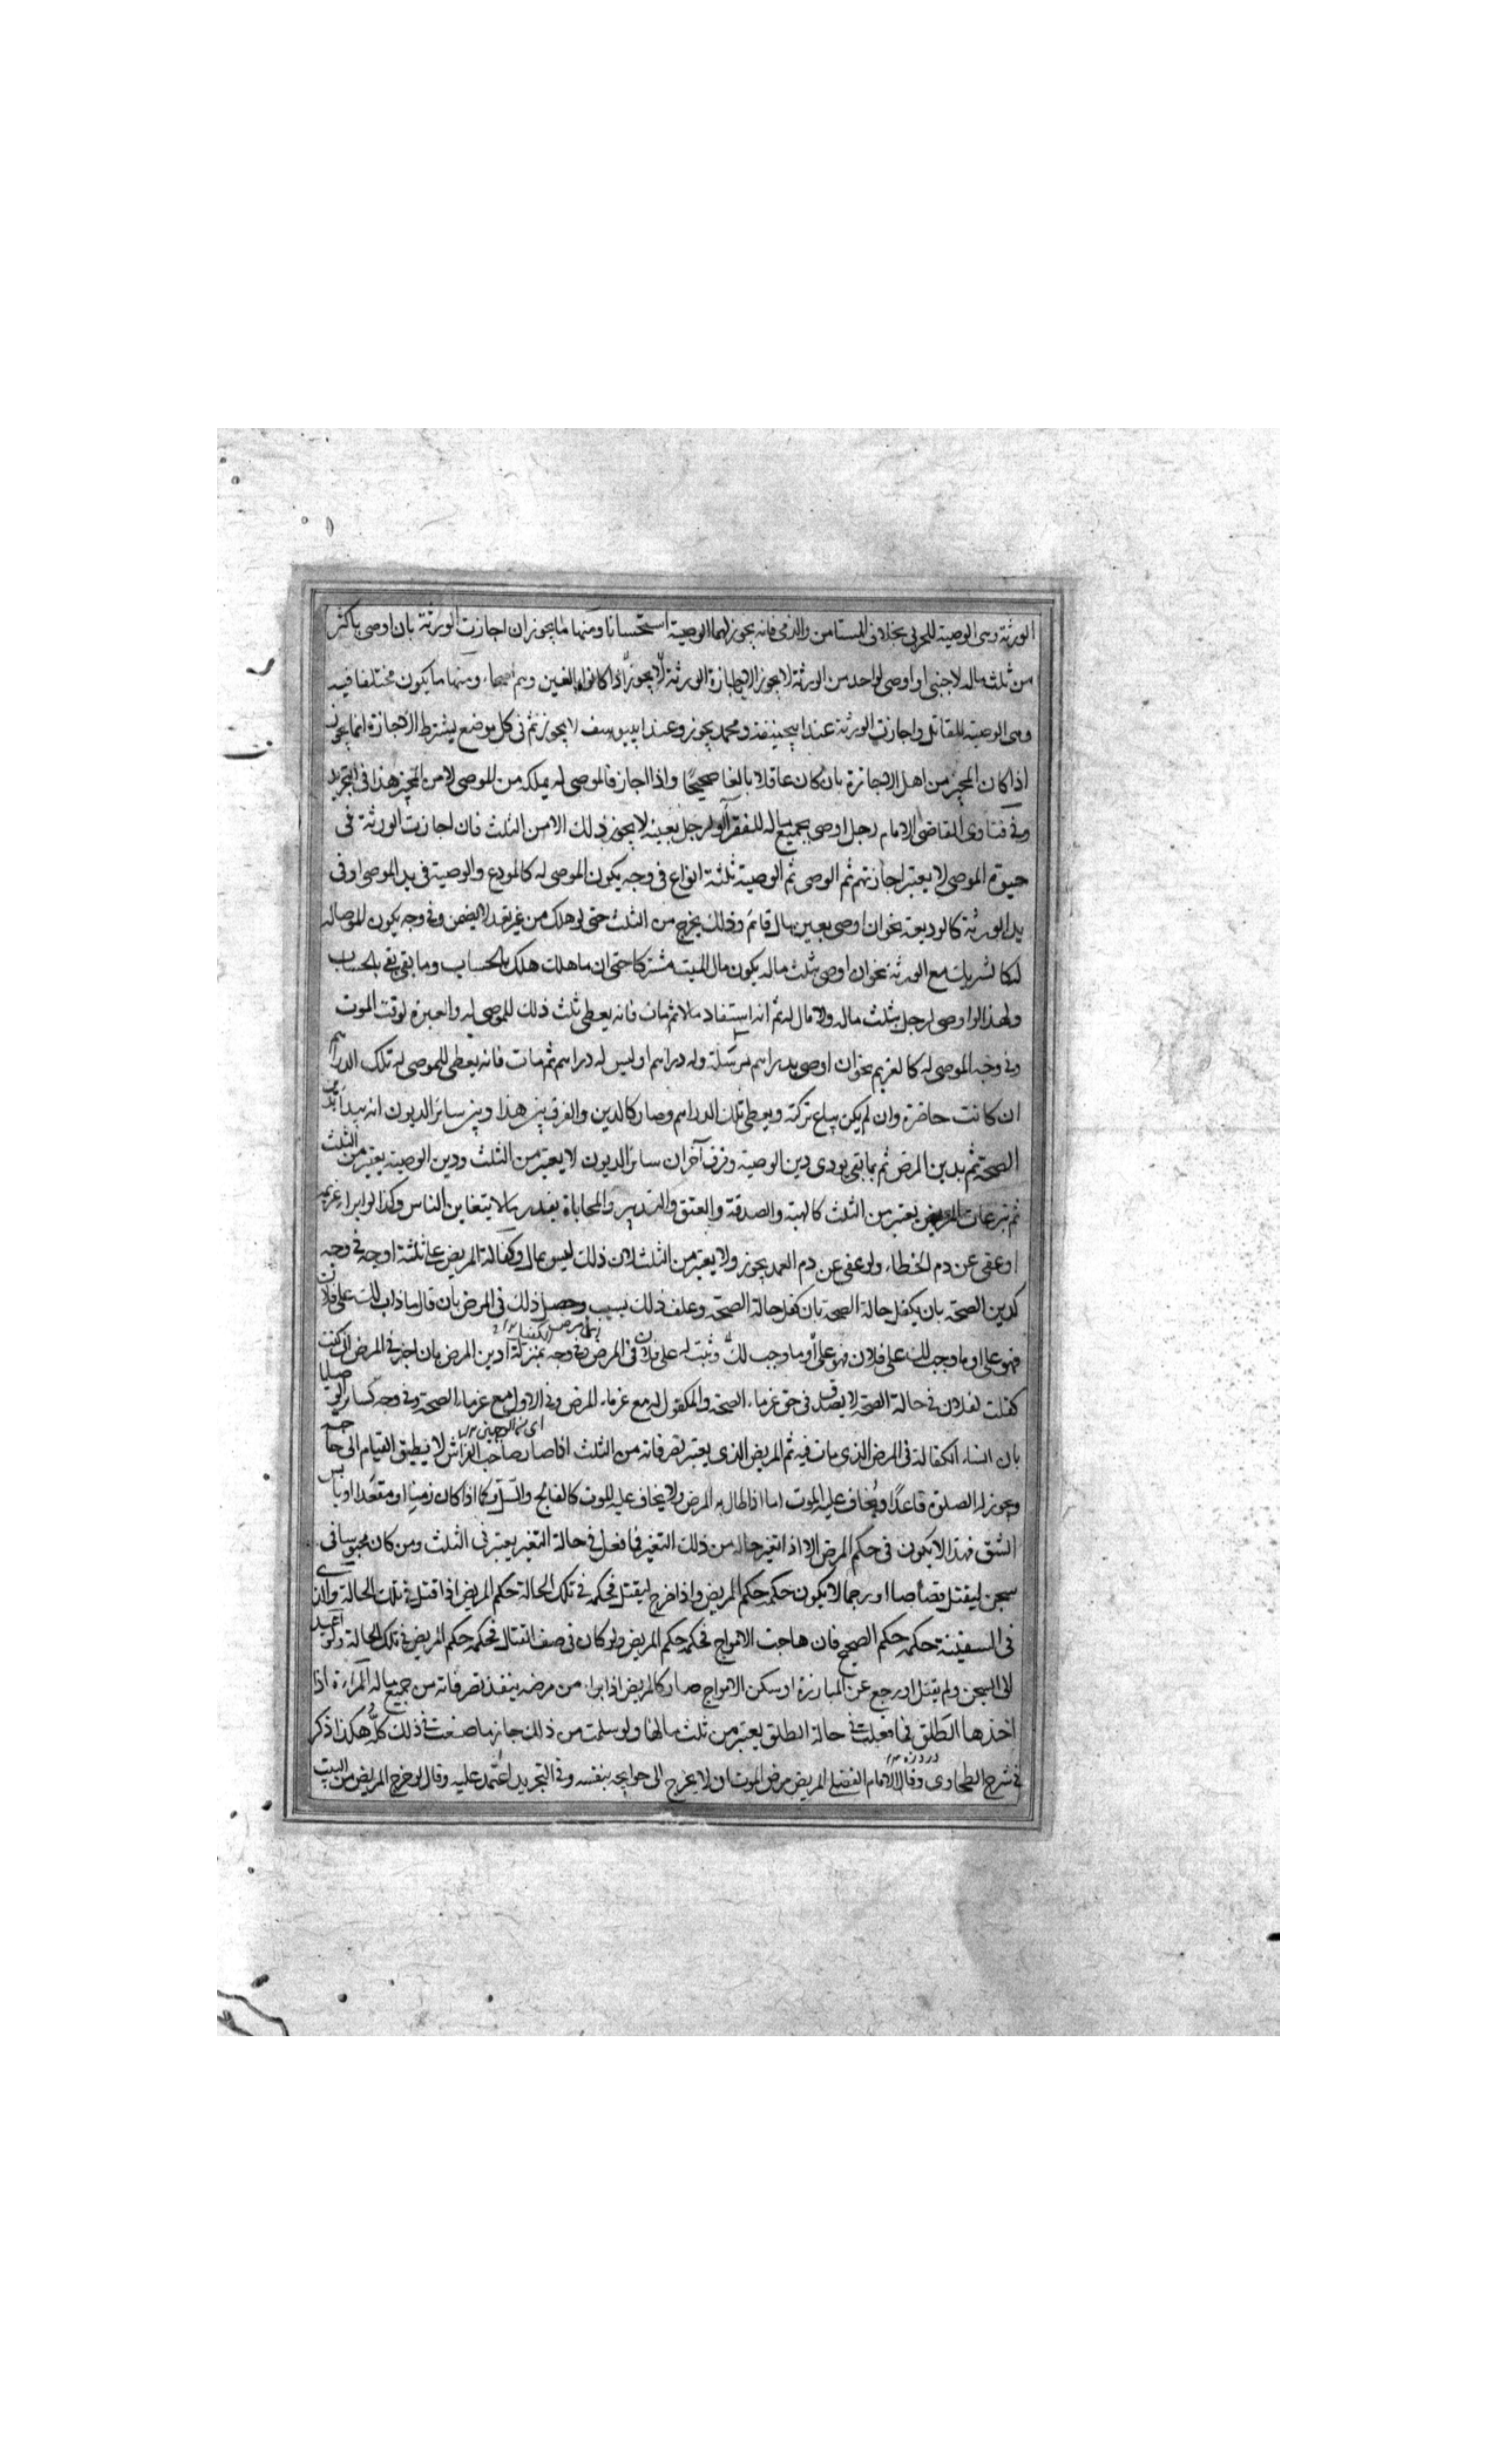 الورثة وهى الوصية للحربى بخلاف المستامن والذمى فانه يجوز لهما الوصية استحسانا ومنها ما يجوز ان اجازت الورثة بان اوصى باكثر
من ثلث ماله لاجنبى او اوصى لواحد من الورثة لا يجوز الا باجازة الورثة اذا كانوا بالغين وهم اصحاء ومنها ما يكون مختلفا فيه
وهى الوصية للقاتل واجازت الورثة عند ابيحنيفة ومحمد يجوز وعند ابيوسف لا يجوز ثم فى كل موضع يشترط الاجازة انما يجوز
اذا كان المجيز من اهل الاجازة بان كان عاقلا بالغا صحيحا واذا اجاز فالموصى له يملكه من الموصى لا من المجيز هذا فى التجريد
وفى فتاوى القاضى الامام رجل اوصى بجميع ماله للفقرآء او لرجل بعينه لا يجوز ذلك الا من الثلث فان اجازت الورثة فى
حيوة الموصى لا يعتبر اجازتهم ثم الوصى ثم الوصية ثلثة انواع فى وجه يكون الموصى له كالمودع والوصية فى يد الموصى او فى
يد الورثة كالوديعة نحو ان اوصى بعين مال قائم وذلك يخرج من الثلث حتى لو هلك من غير تعد لا يضمن وفى وجه يكون الموصا له
له كالشريك مع الورثة نحو ان اوصى بثلث ماله يكون مال الميت مشتركا حتى ان ما هلك هلك بالحساب وما بقى بقى بالحساب
ولهذا لو اوصى لرجل بثلث ماله ولا مال له ثم انه استفاد مالا ثم مات فانه يعطى ثلث ذلك للموصى له والعبرة لوقت الموت
وفى وجه الموصى له كالغريم نحو ان اوصى بدراهم مرسلة وله دراهم او ليس له دراهم ثم مات فانه يعطى للموصى له تلك الدراهم
ان كانت حاضرة وان لم يكن يباع تركته ويعطى تلك الدراهم وصار كالدين والفرق بين هذا وبين سائر الديون انه يبدأ بدين
الصحة ثم بدين المرض ثم بما بقى يودى دين الوصية وفرق آخر ان سائر الديون لا يعتبر من الثلث ودين الوصية يعتبر من الثلث
ثم تبرعات المريض يعتبر من الثلث كالهبة والصدقة والعتق والتدبير والمحاباة بقدر ما لا يتغابن الناس وكذا لو ابراء غريمه
او عفى عن دم الخطاء ولو عفى عن دم العمد يجوز ولا يعتبر من الثلث لان ذلك ليس بمال وكفالة المريض على ثلثة اوجه فى وجه
كدين الصحة بان يكفل حالة الصحة بان كفل حالة الصحة وعلق ذلك بسبب وحصل ذلك فى المرض بان قال ما ذاب لك على فلان
فهو على او ما وجب لك على فلان فهو على او ما وجب لك وثبت له على فلان فى المرض وفى وجه بمنزلة دين المرض بان اخبر فى المرض انى كنت
كفلت لفلان فى حالة الصحة لا يصدق فى حق غرماء الصحة والمكفول له مع غرماء المرض وفى الاول مع غرماء الصحة وفى وجه كسائر الوصايا
بان انشاء الكفالة فى المرض الذى مات فيه ثم المريض الذى يعتبر تصرفاته من الثلث اذا صار صاحب الفراش لا يطيق القيام الى حاجته
ويجوز له الصلوة قاعدا ويخاف عليه الموت اما اذا طال به المرض ولا يخاف عليه الموت كالفالج والسل وكما اذا كان زمينا او مقعدا او يابس
الشق فهذا لا يكون فى حكم المرض الا اذا تغير حاله من ذلك التغير فما فعل فى حالة التغير يعتبر فى الثلث ومن كان محبوسا فى
سجن ليقتل قصاصا او رجما لا يكون حكمه حكم المريض واذا خرج ليقتل فحكمه فى تلك الحالة حكم المريض اذا قتل فى تلك الحالة والذى
فى السفينة حكمه حكم الصحيح فان هاجت الامواج فحكمه حكم المريض ولو كان فى صف القتال فحكمه حكم المريض فى تلك الحالة ولو اعيد
الى السجن ولم يقتل او رجع عن المبارزة او سكن الامواج صار كالمريض اذا براء من مرضه ينفذ تصرفاته من جميع ماله المراءة اذا
اخذها الطلق فما فعلت فى حالة الطلق يعتبر من ثلث مالها ولو سلمت من ذلك جاز ما صنعت فى ذلك كله هكذا ذكر
فى شرح الطحاوى وقال الامام الفضلى المريض مرض الموت ان لا يخرج الى حوايجه بنفسه وفى التجريد اعتمد عليه وقال لو خرج المريض من البيت